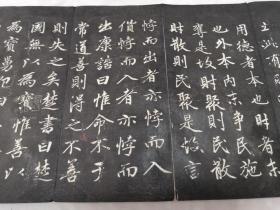 用德者本也財
也外本內末爭民施
奪是故財聚則民散
財散則民聚是故言
悖而出者亦悖而入
貨悖而入者亦悖而
出康誥曰惟命不于
常道善則得之不善
則失之矣楚書曰楚
國無以為寶惟善
為寶舅犯曰